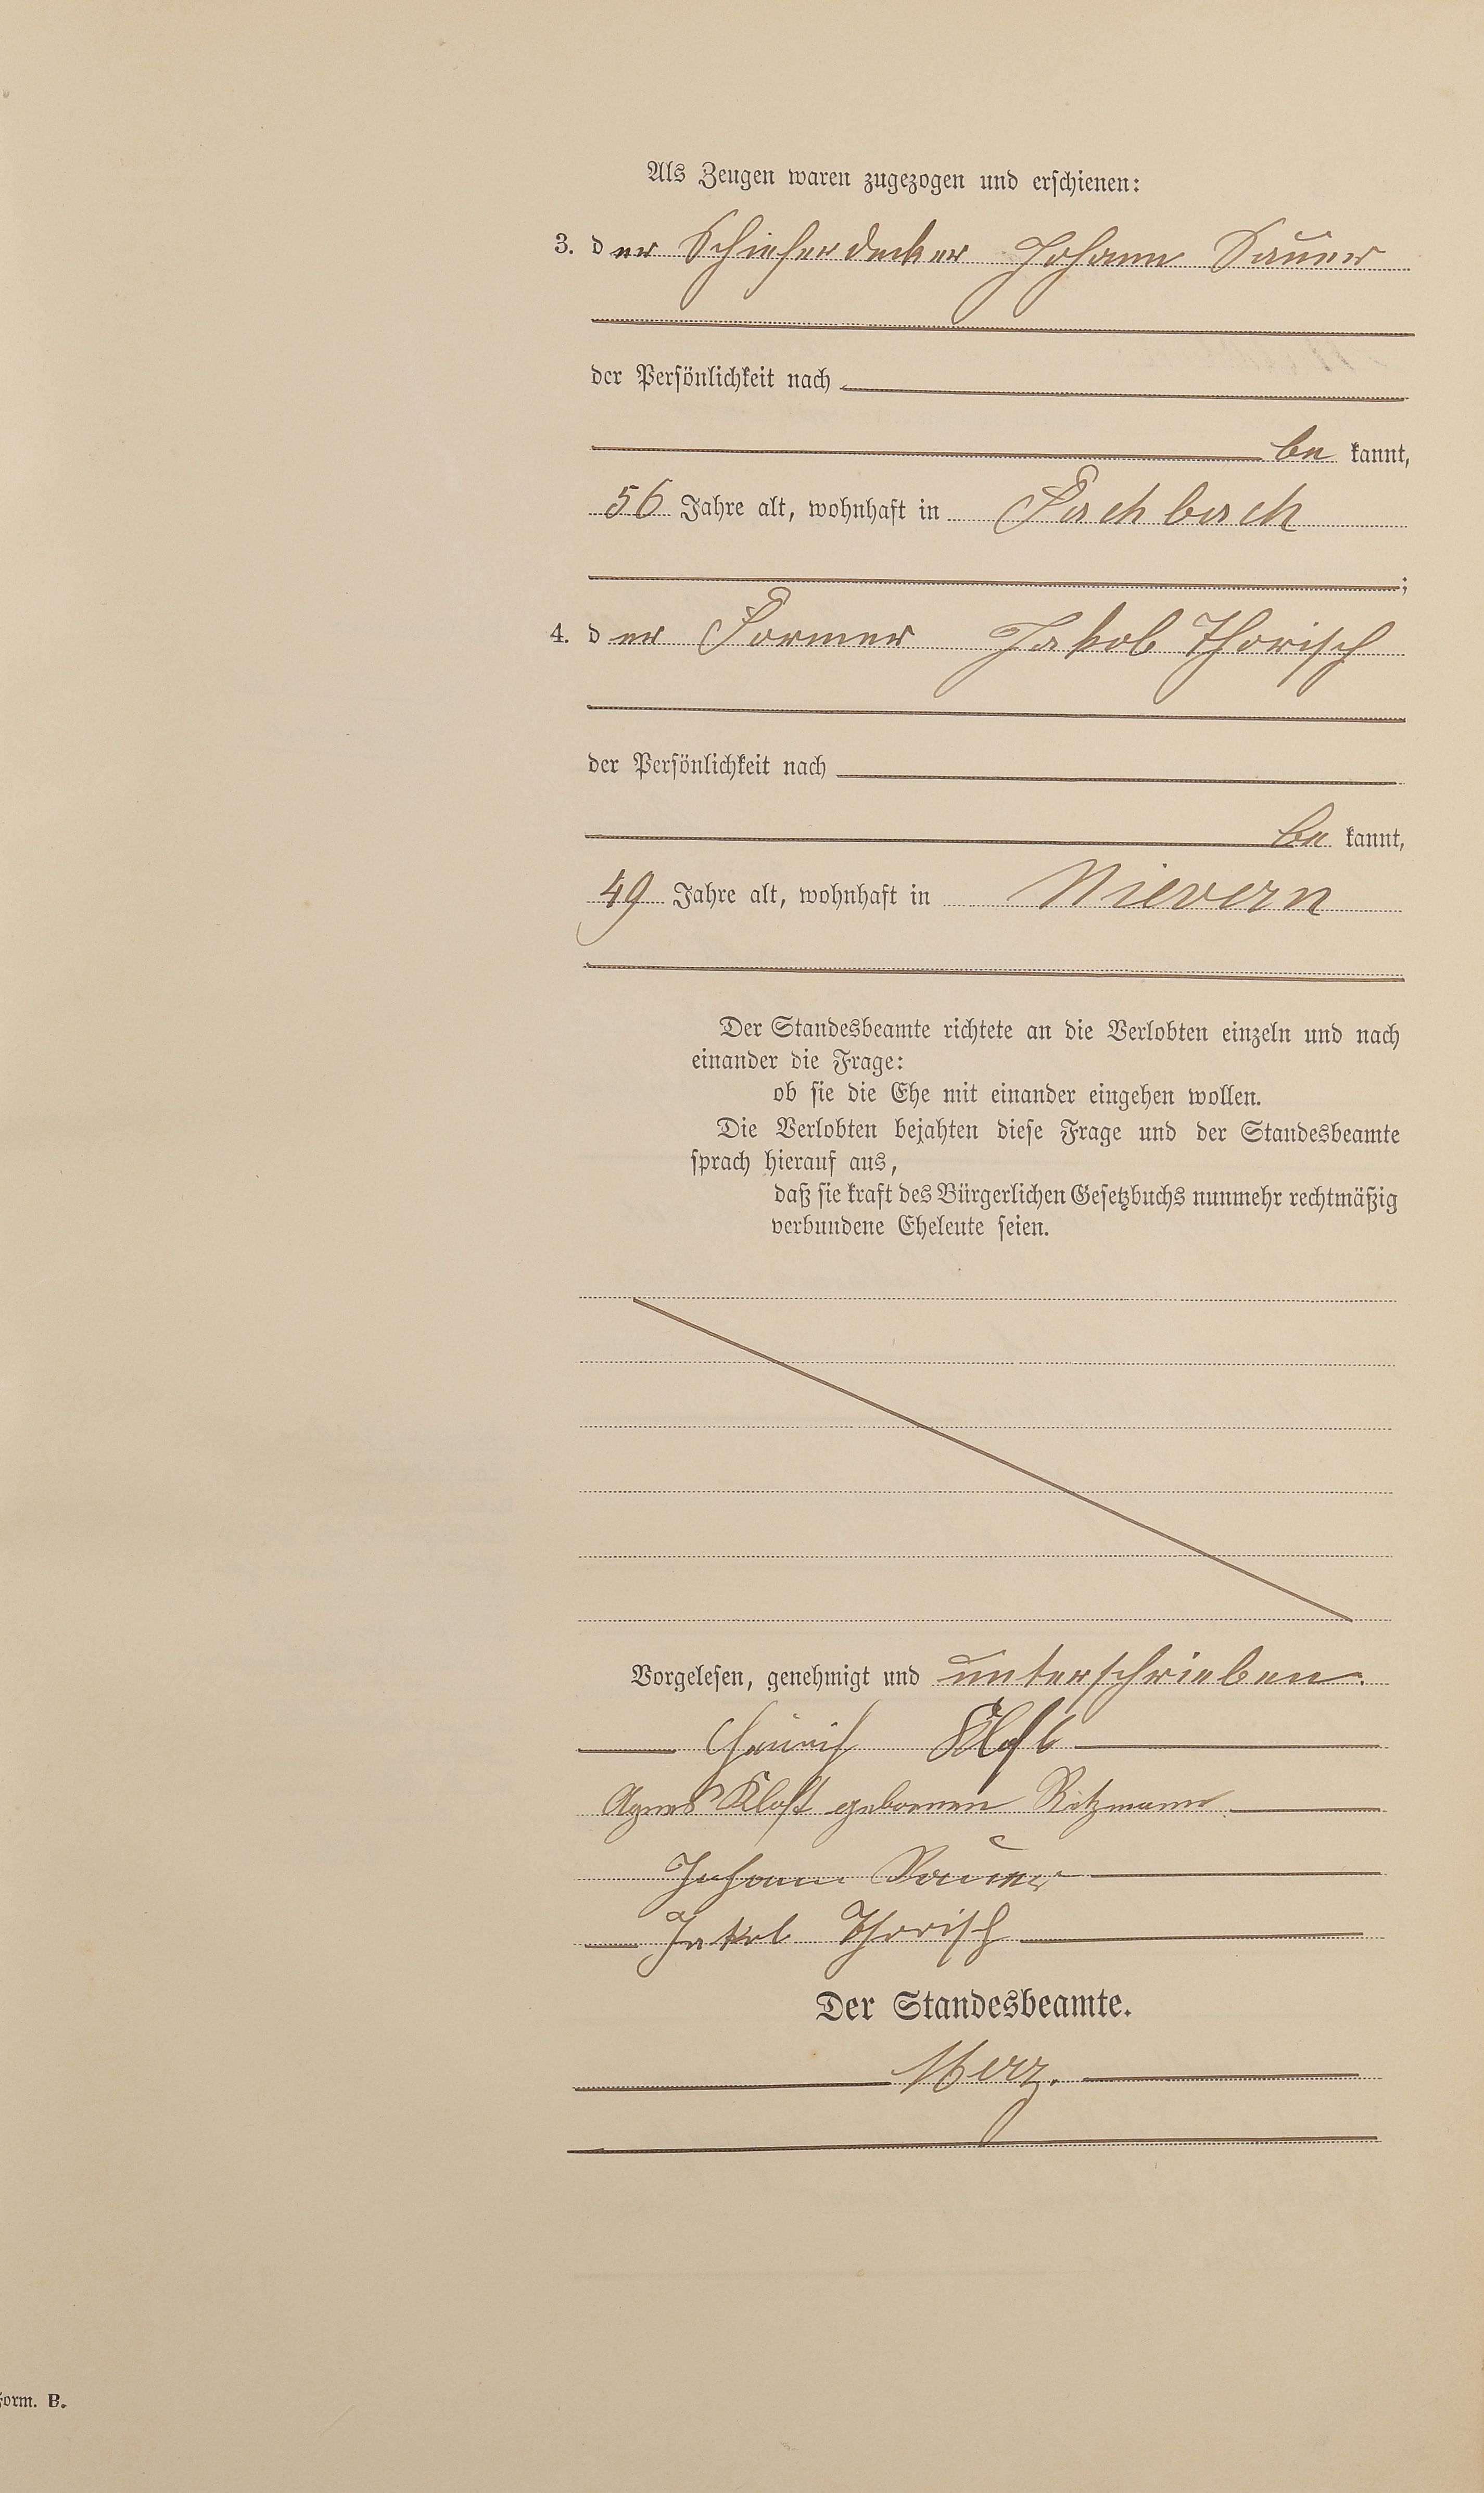 Als Zeugen waren zugezogen und erschienen:
3. der Schieferdecker Johann Sauer
der Persönlichkeit nach
be kannt,
56 Jahre alt, wohnhaft in Fachbach
;
4. der Former Jakob Thorisch
der Persönlichkeit nach
be kannt,
49 Jahre alt, wohnhaft in Nievern
Der Standesbeamte richtete an die Verlobten einzeln und nach
einander die Frage:
ob sie die Ehe mit einander eingehen wollen.
Die Verlobten bejahten diese Frage und der Standesbeamte
sprach hierauf aus,
daß sie kraft des Bürgerlichen Gesetzbuchs nunmehr rechtmäßig
verbundene Eheleute seien.
Vorgelesen, genehmigt und unterschrieben.
Kloft
Agnes Kloft geborenen Ritzmann
Johann Sauer
Jakob Thorisch
Der Standesbeamte.
Merz.
Form. B.